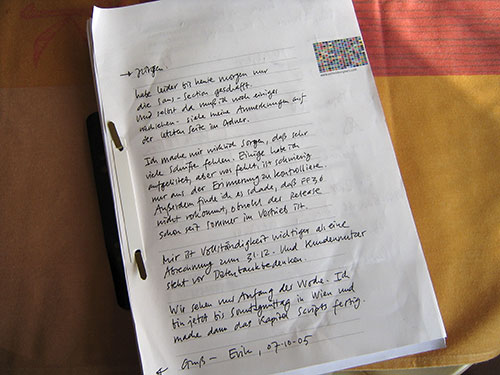 → Jürgen
habe leider bis heute morgen nur
die Sans-Section geschafft.
Und selbst da muß ich noch einiges
siehe meine Anmerkungen auf
der letzten Seite im Ordner.
Ich mache mir wirklich Sorgen, daß sehr
viele Schriften fehlen. Einige habe ich
aufgelistet, aber was fehlt, ist schwierig
nur aus der Erinnerung zu kontrollieren.
Außerdem finde ich es schade, daß FF36
nicht vorkommt, obwohl das Release
schon seit Sommer im Vertrieb ist.
Mir ist Vollständigkeit wichtiger als eine
Abrechnung zum 31.12. Und Kundennutzen
steht vor Datenbankdenken.
Wir sehen uns Anfang der Woche. Ich
bin jetzt bis Sonntagmittag in Wien und
mache dann das Kapitel Scripts fertig.
Gruß – Erik, 07-10-05